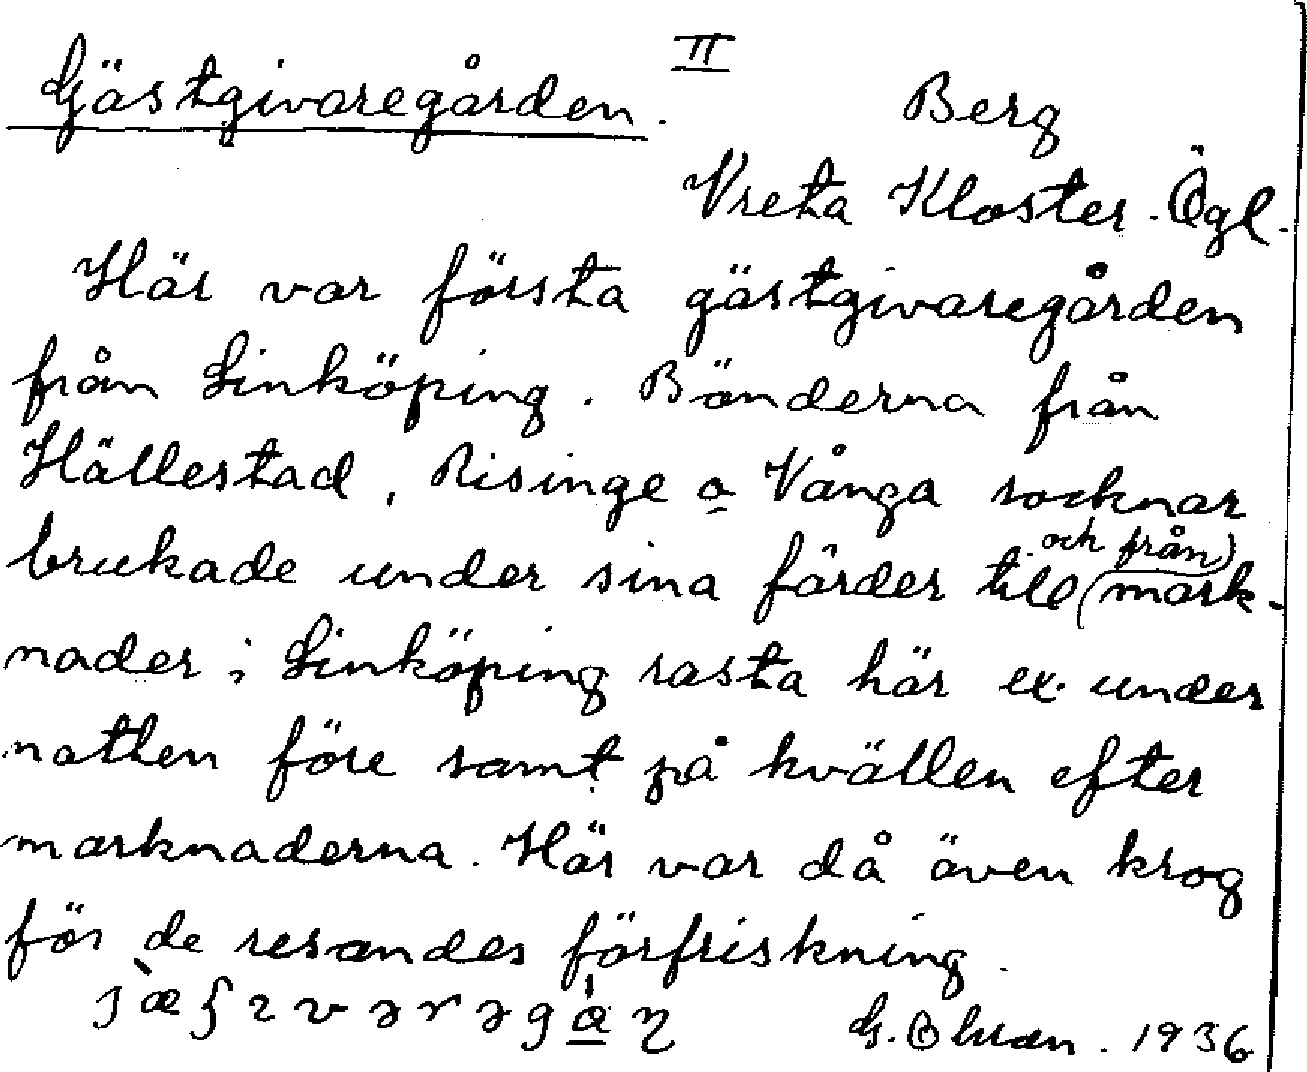 II
Gästgivaregården.
Berg
Vreta Kloster. Ögl.
Här var första gästgivaregården
från Linköping. Bönderna från
Hällestad, Risinge o Vånga socknar
brukade under sina färder till (och från) mark-
nader i Linköping rasta här ex. under
natten före samt på kvällen efter
marknaderna. Här var då även krog
för de resandes förfriskning.
G. 1936